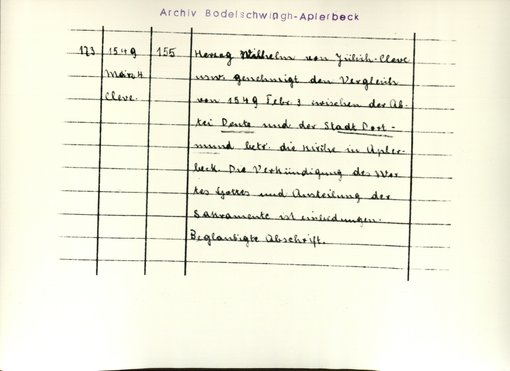 Archiv Bodelschwingh-Aplerbeck
173 1549 155 Herzog Wilhelm von Jülich-Cleve
März 4 usw. genehmigt den Vergleich
Cleve. von 1549 Febr. 3 zwischen der Ab-
tei Deutz und der Stadt Dort-
mund betr. die Kirche in Apler-
beck. Die Verkündigung des Wor-
tes Gottes und Austeilung der
Sakramente ist einbedungen.
Beglaubigte Abschrift.